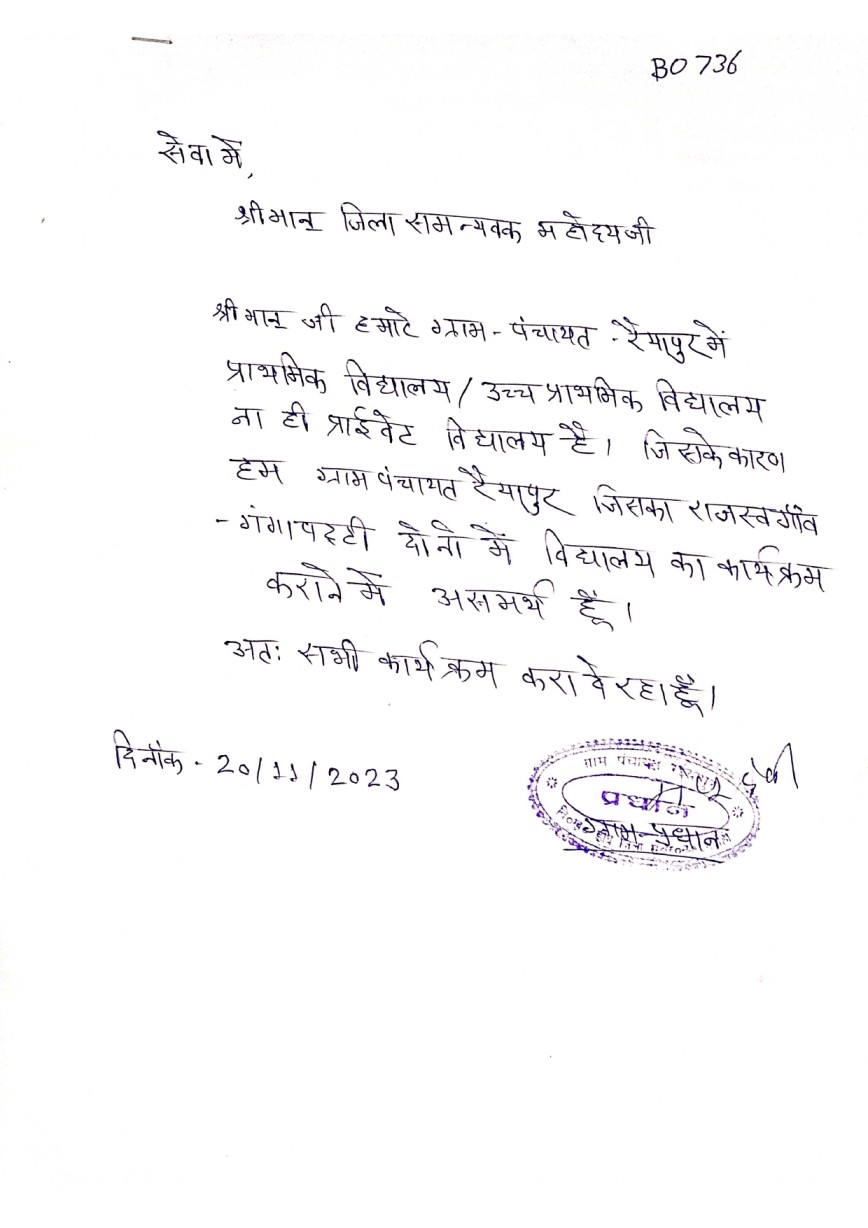 BO 736
सेवा में,
श्रीमान् जिला समन्यवक महोदय जी
श्रीमान् जी हमारे ग्राम - पंचायत - रैयापुर में
प्राथमिक विद्यालय / उच्च प्राथमिक विद्यालय
ना ही प्राईवेट विद्यालय है। जिसके कारण
हम ग्राम पंचायत रैयापुर जिसका राजस्व गाँव
- गंगापट्टी दोनो में विद्यालय का कार्यक्रम
कराने में असमर्थ हूँ।
अतः सभी कार्यक्रम करा दे रहा हूँ।
दिनाँक - 20/11/2023
ग्राम पंचायत
देवी
प्रधान
ग्राम-प्रधान